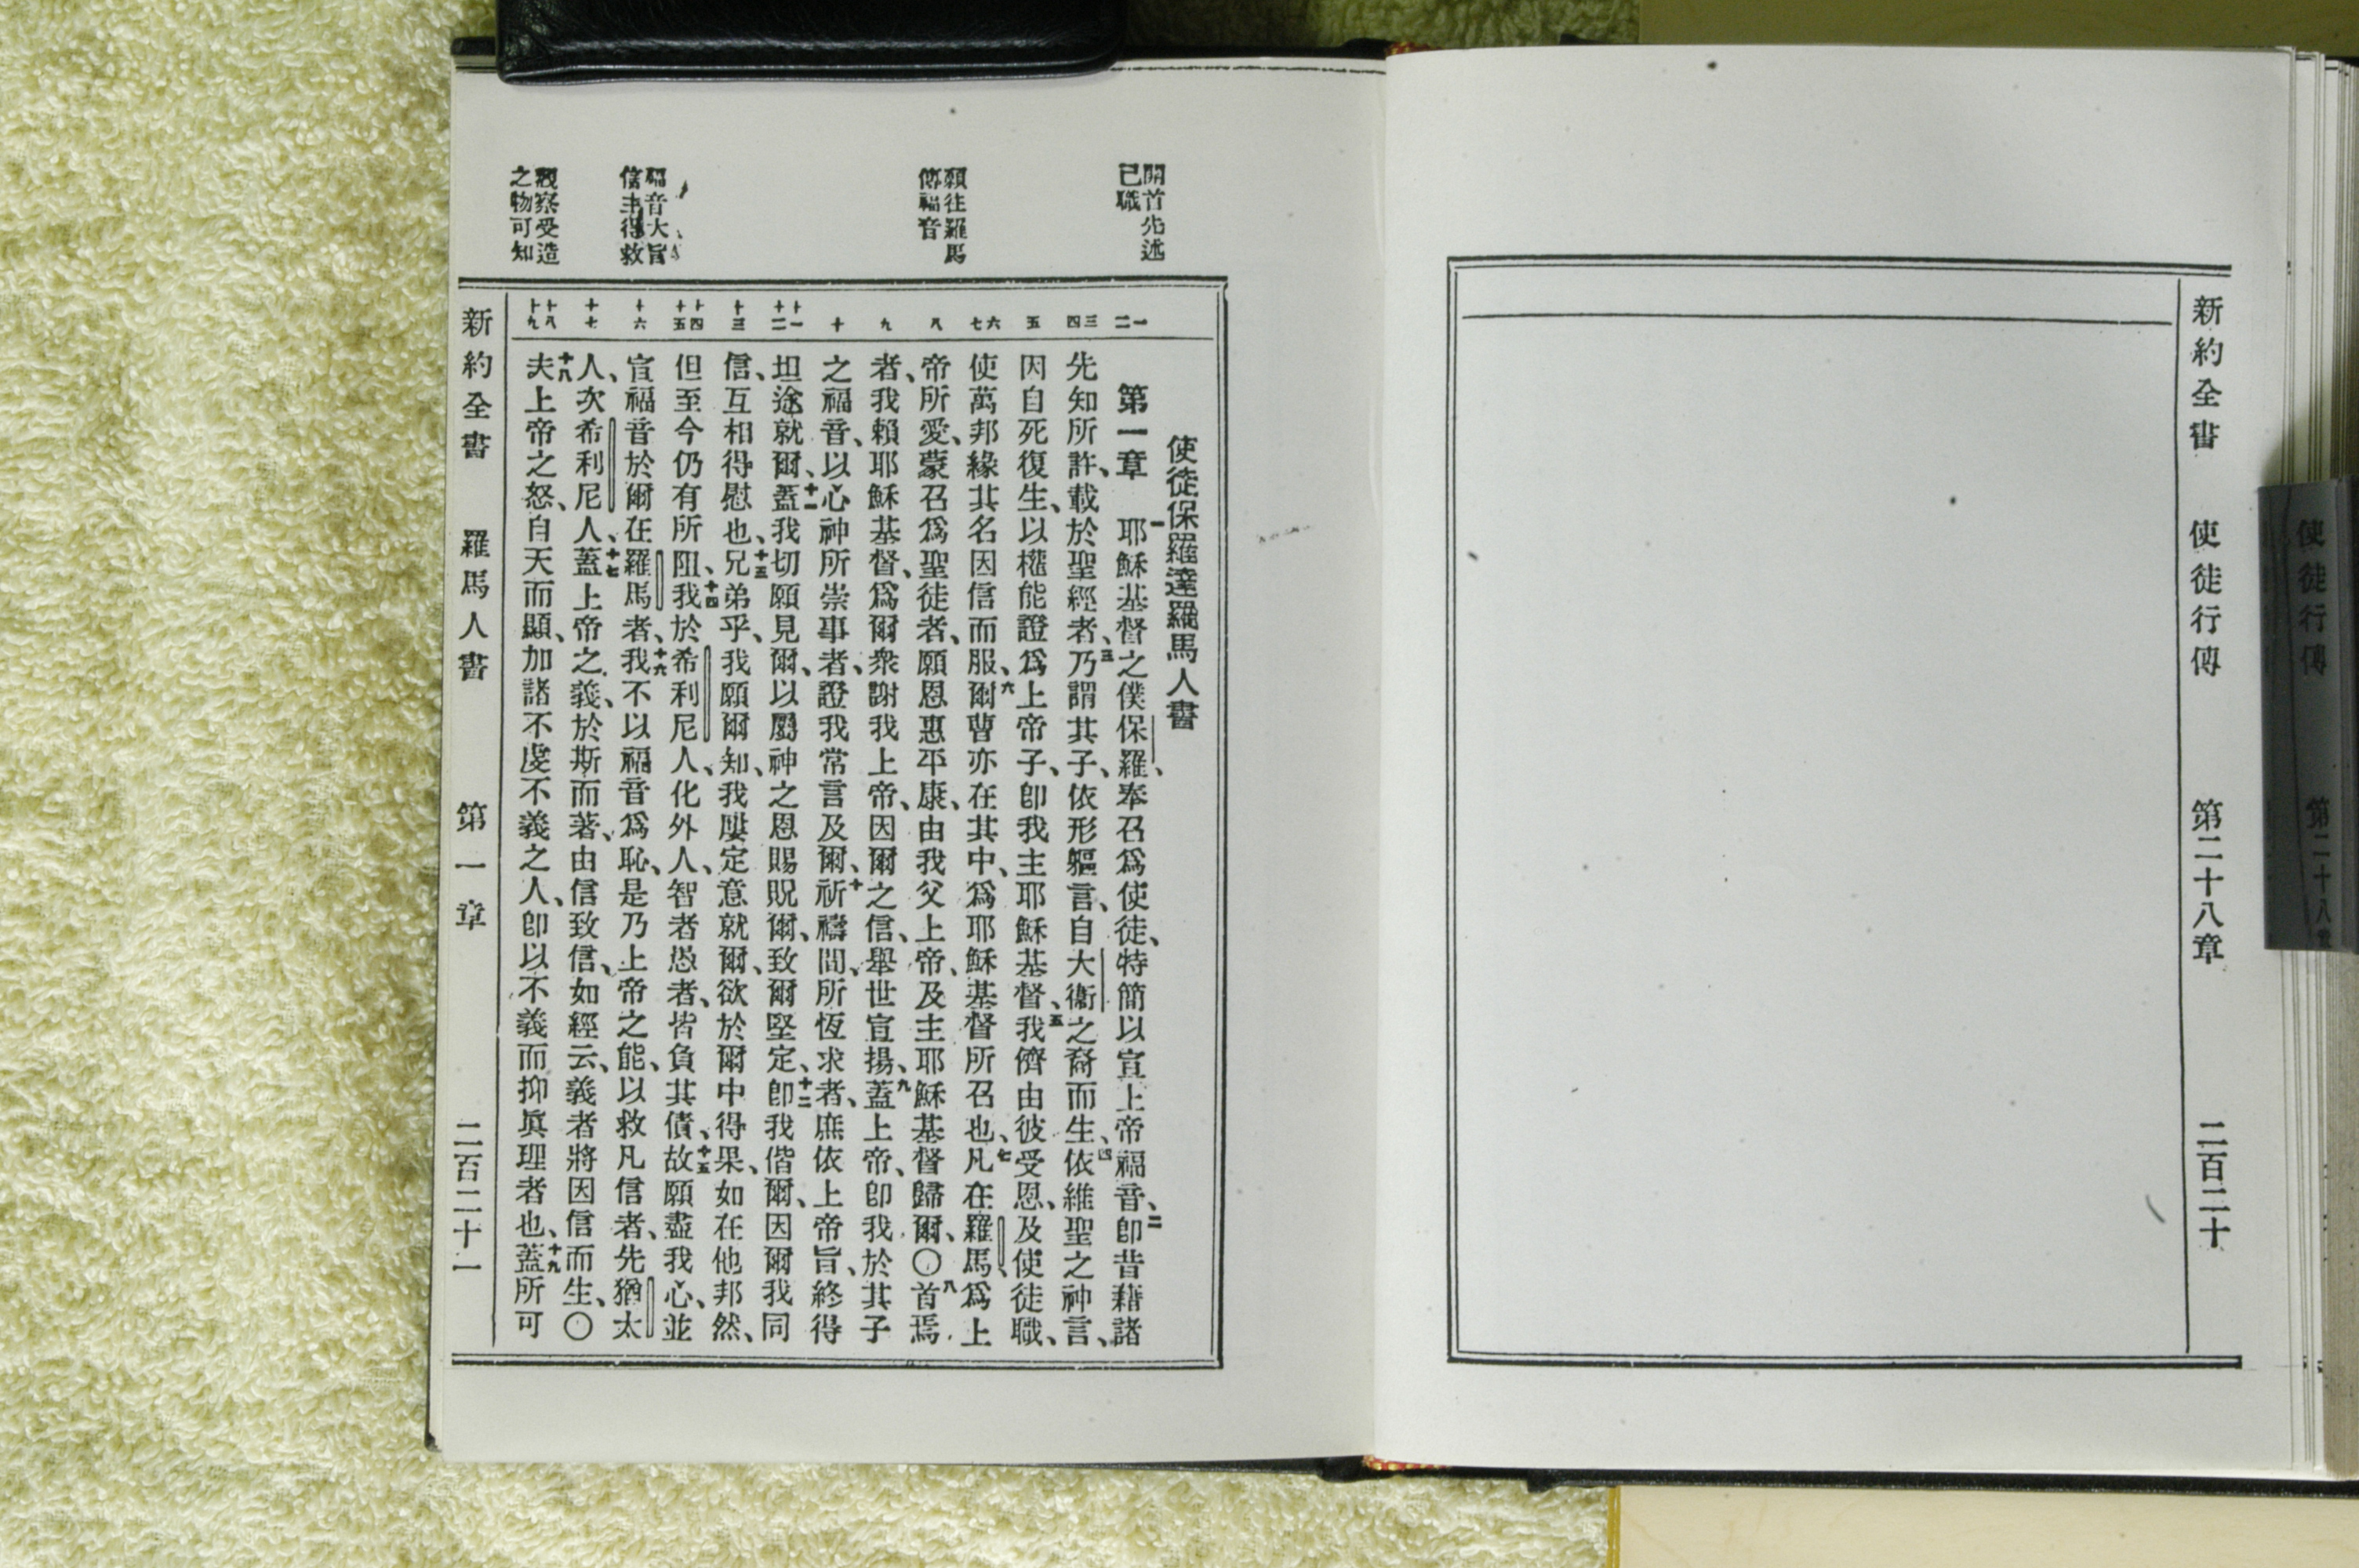 新約全書 使徒行傳 第二十八章 二百二十
使徒行傳 第二十八章
開首先述
己職
願往羅馬
傳福音
福音大旨
信主得救
觀察受造
之物可知
一 二 三 四 五 六 七 八 九 十 十一 十二 十三 十四 十五 十六 十七 十八 十九
使徒保羅達羅馬人書
第一章 一耶穌基督之僕保羅、奉召爲使徒、特簡以宣上帝福音、二卽昔藉諸
先知所許、載於聖經者、三乃謂其子、依形軀言、自大衞之裔而生、四依維聖之神言、
因自死復生、以權能證爲上帝子、卽我主耶穌基督、五我儕由彼受恩、及使徒職、
使萬邦緣其名因信而服、六爾曹亦在其中、爲耶穌基督所召也、七凡在羅馬、爲上
帝所愛、蒙召爲聖徒者、願恩惠平康、由我父上帝、及主耶穌基督歸爾、〇八首焉
者、我賴耶穌基督、爲爾衆謝我上帝、因爾之信、舉世宣揚、九蓋上帝、卽我於其子
之福音、以心神所崇事者、證我常言及爾、十祈禱間、所恆求者、庶依上帝旨、終得
坦途就爾、十一蓋我切願見爾、以屬神之恩賜貺爾、致爾堅定、十二卽我偕爾、因爾我同
信、互相得慰也、十三兄弟乎、我願爾知、我屢定意就爾、欲於爾中得果、如在他邦然、
但至今仍有所阻、十四我於希利尼人、化外人、智者愚者、皆負其債、十五故願盡我心、並
宣福音於爾在羅馬者、十六我不以福音爲恥、是乃上帝之能、以救凡信者、先猶太
人、次希利尼人、十七蓋上帝之義、於斯而著、由信致信、如經云、義者將因信而生、〇
十八夫上帝之怒、自天而顯、加諸不虔不義之人、卽以不義而抑眞理者也、十九蓋所可
新約全書 羅馬人書 第一章 二百二十一